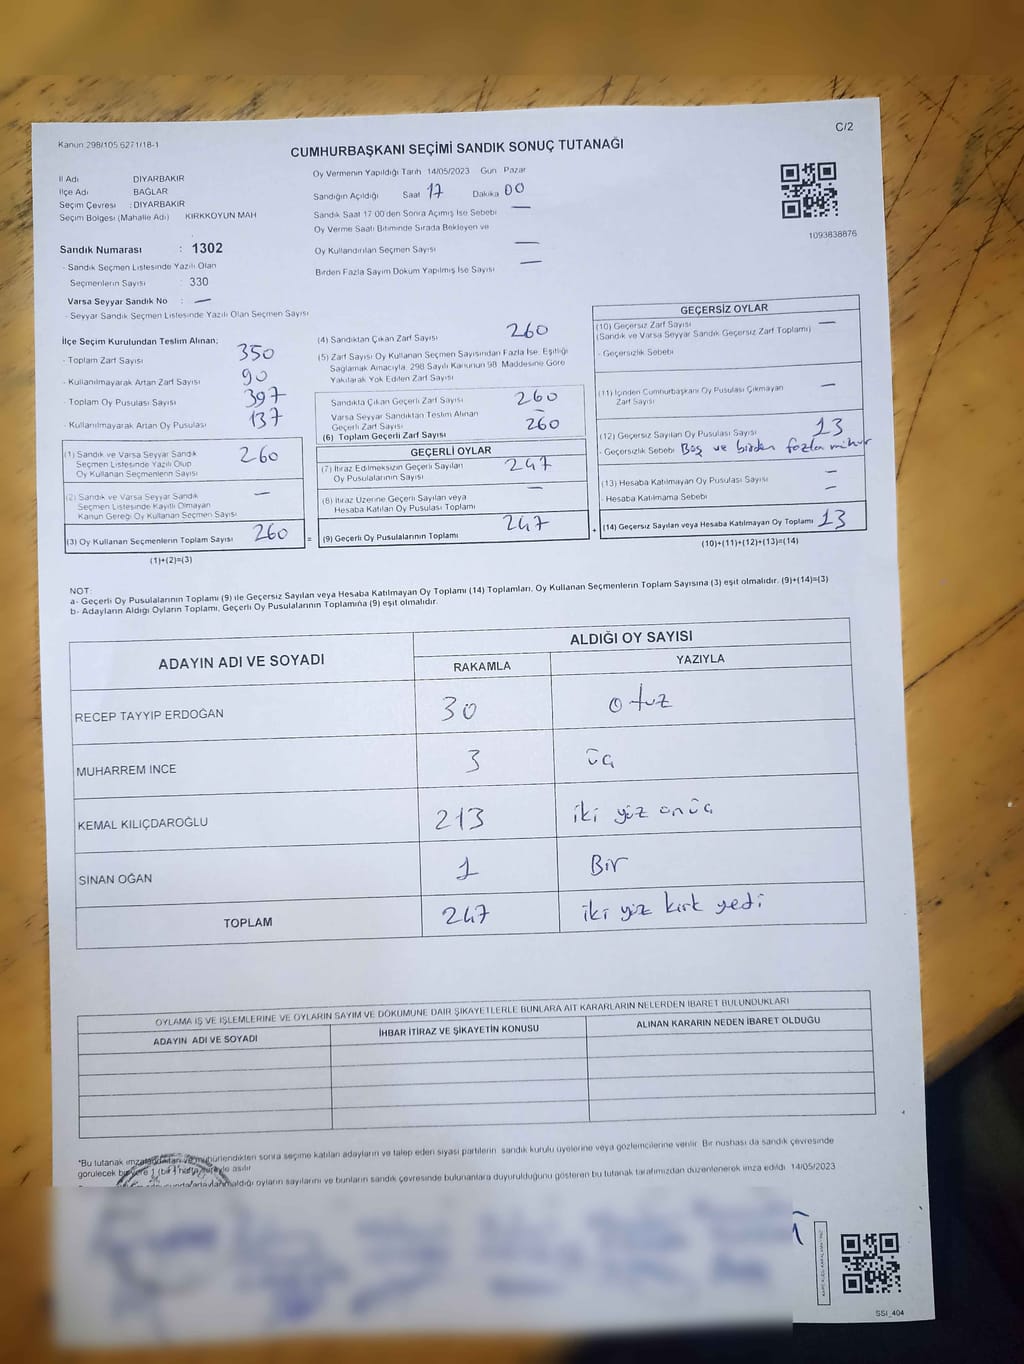 Kanun 298/105 6271/18-1
C/2
CUMHURBAŞKANI SEÇİMİ SANDIK SONUÇ TUTANAĞI
İl Adı DİYARBAKIR
İlçe Adı BAĞLAR
Seçim Çevresi : DİYARBAKIR
Seçim Bölgesi (Mahalle Adı) KIRKKOYUN MAH
Sandık Numarası : 1302
- Sandık Seçmen Listesinde Yazılı Olan
Seçmenlerin Sayısı : 330
Varsa Seyyar Sandık No : —
- Seyyar Sandık Seçmen Listesinde Yazılı Olan Seçmen Sayısı
Oy Vermenin Yapıldığı Tarih 14/05/2023 Gün Pazar
Sandığın Açıldığı Saat 17 Dakika 00
Sandık Saat 17 00'den Sonra Açılmış İse Sebebi —
Oy Verme Saati Bitiminde Sırada Bekleyen ve
Oy Kullandırılan Seçmen Sayısı —
Birden Fazla Sayım Döküm Yapılmış İse Sayısı —
1093838876
İlçe Seçim Kurulundan Teslim Alınan;
- Toplam Zarf Sayısı 350
- Kullanılmayarak Artan Zarf Sayısı 90
- Toplam Oy Pusulası Sayısı 397
- Kullanılmayarak Artan Oy Pusulası 137
(1) Sandık ve Varsa Seyyar Sandık
Seçmen Listesinde Yazılı Olup
Oy Kullanan Seçmenlerin Sayısı 260
(2) Sandık ve Varsa Seyyar Sandık
Seçmen Listesinde Kayıtlı Olmayan
Kanun Gereği Oy Kullanan Seçmen Sayısı —
(3) Oy Kullanan Seçmenlerin Toplam Sayısı 260 =
(1)+(2)=(3)
(4) Sandıktan Çıkan Zarf Sayısı 260
(5) Zarf Sayısı Oy Kullanan Seçmen Sayısından Fazla İse, Eşitliği
Sağlamak Amacıyla, 298 Sayılı Kanunun 98. Maddesine Göre
Yakılarak Yok Edilen Zarf Sayısı
Sandıkta Çıkan Geçerli Zarf Sayısı 260
Varsa Seyyar Sandıktan Teslim Alınan
Geçerli Zarf Sayısı —
(6) Toplam Geçerli Zarf Sayısı 260
GEÇERLİ OYLAR
(7) İtiraz Edilmeksizin Geçerli Sayılan
Oy Pusulası Sayısı 247
(8) İtiraz Üzerine Geçerli Sayılan veya
Hesaba Katılan Oy Pusulası Toplamı —
(9) Geçerli Oy Pusulalarının Toplamı 247 +
GEÇERSİZ OYLAR
(10) Geçersiz Zarf Sayısı —
(Sandık ve Varsa Seyyar Sandık Geçersiz Zarf Toplamı)
- Geçersizlik Sebebi
(11) İçinden Cumhurbaşkanı Oy Pusulası Çıkmayan
Zarf Sayısı —
(12) Geçersiz Sayılan Oy Pusulası Sayısı 13
- Geçersizlik Sebebi Boş ve birden fazla mühür
(13) Hesaba Katılmayan Oy Pusulası Sayısı —
- Hesaba Katılmama Sebebi —
(14) Geçersiz Sayılan veya Hesaba Katılmayan Oy Toplamı 13
(10)+(11)+(12)+(13)=(14)
NOT:
a- Geçerli Oy Pusulalarının Toplamı (9) ile Geçersiz Sayılan veya Hesaba Katılmayan Oy Toplamı (14) Toplamları, Oy Kullanan Seçmenlerin Toplam Sayısına (3) eşit olmalıdır. (9)+(14)=(3)
b- Adayların Aldığı Oyların Toplamı, Geçerli Oy Pusulalarının Toplamına (9) eşit olmalıdır.
ADAYIN ADI VE SOYADI ALDIĞI OY SAYISI
RAKAMLA YAZIYLA
RECEP TAYYİP ERDOĞAN 30 otuz
MUHARREM İNCE 3 üç
KEMAL KILIÇDAROĞLU 213 iki yüz onüç
SİNAN OĞAN 1 Bir
TOPLAM 247 iki yüz kırk yedi
OYLAMA İŞ VE İŞLEMLERİNE VE OYLARIN SAYIM VE DÖKÜMÜNE DAİR ŞİKAYETLERLE BUNLARA AİT KARARLARIN NELERDEN İBARET BULUNDUKLARI
ADAYIN ADI VE SOYADI İHBAR İTİRAZ VE ŞİKAYETİN KONUSU ALINAN KARARIN NEDEN İBARET OLDUĞU
*Bu tutanak imzalandıktan ve mühürlendikten sonra seçime katılan adayların ve talep eden siyasi partilerin sandık kurulu üyelerine veya gözlemcilerine verilir. Bir nüshası da sandık çevresinde
görülecek bir yere 1 (bir) hafta süreyle asılır
oyların sayılarını ve bunların sandık çevresinde bulunanlara duyurulduğunu gösteren bu tutanak tarafımızdan düzenlenerek imza edildi. 14/05/2023
SSİ_404